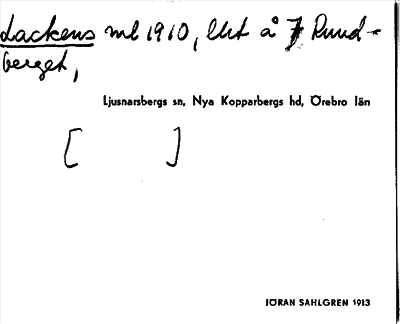 Lackens ml 1910, litt å 7 Rund-
berget,
Ljusnarsbergs sn, Nya Kopparbergs hd, Örebro län
[ ]
JÖRAN SAHLGREN 1913